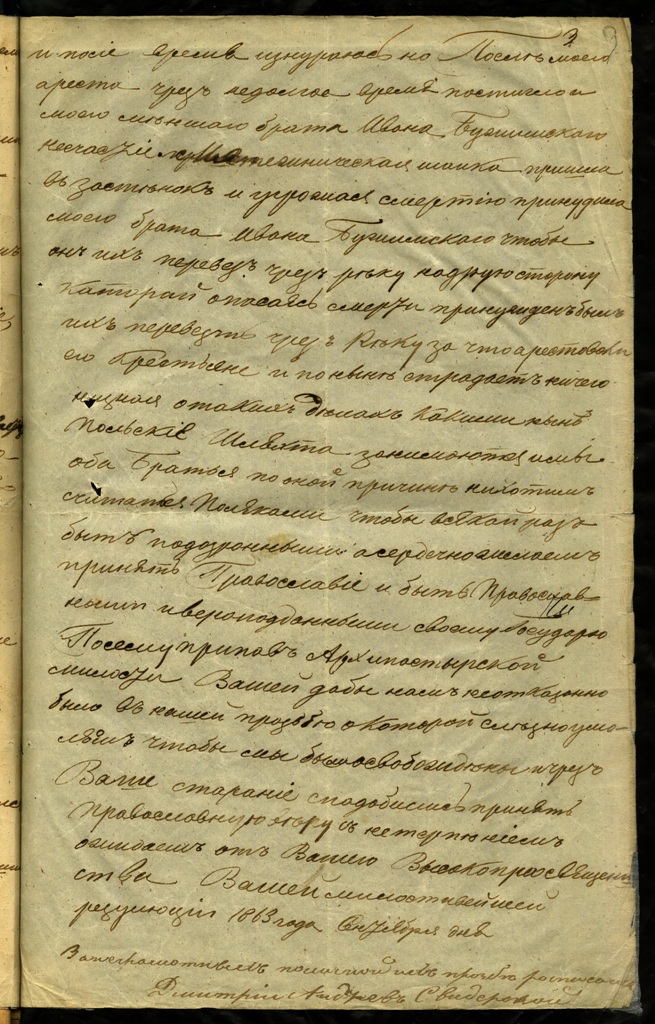 3
и после время изнураюсь но После моего
ареста чрезъ недолгое время постигло и
моего меньшаго брата Ивана Бугилмскаго
несчастіе мятегиническая шайка пришла
въ застѣнокъ и угрожая смертію принудила
моего брата Ивана Бугилмскаго чтобы
онъ ихъ перевезъ чрезъ рѣку на другую сторону
каторай опасаясь смерти принужденъ былъ
ихъ перевезть чрезъ Рѣку за что арестовали
его Крестьяне и по нынѣ страдаетъ ничего
незная о такихъ дѣлахъ какими нынѣ
Польскіе Шляхта занимаются и мы
оба Братья по оной причинѣ нихотимъ
считаться Поляками чтобы всякай разъ
быть подозронными а сердечно желаемъ
принять Православіе и быть Православ
ными и вероподданными своему Государю
Посему припавъ Архипастырской
милости Вашей дабы намъ неотказанно
было въ нашей прозьбю о которой слезно умо-
ляемъ чтобы мы были освобождены и чрезъ
Ваше стараніе сподобились принять
православную вѣру съ нетерпѣніемъ
ожидаемъ отъ Вашего Высокопреосвящен
ства Вашей милостивейшей
резулюціи 1863 года Сентября дня
За неграмотныхъ по личной ихъ прозьбе росписался
Дмитрій Андреевъ Свидерской